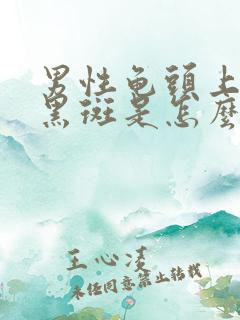 男性龟頭上
黑斑是怎麼
王心凌
未经同意禁止转载